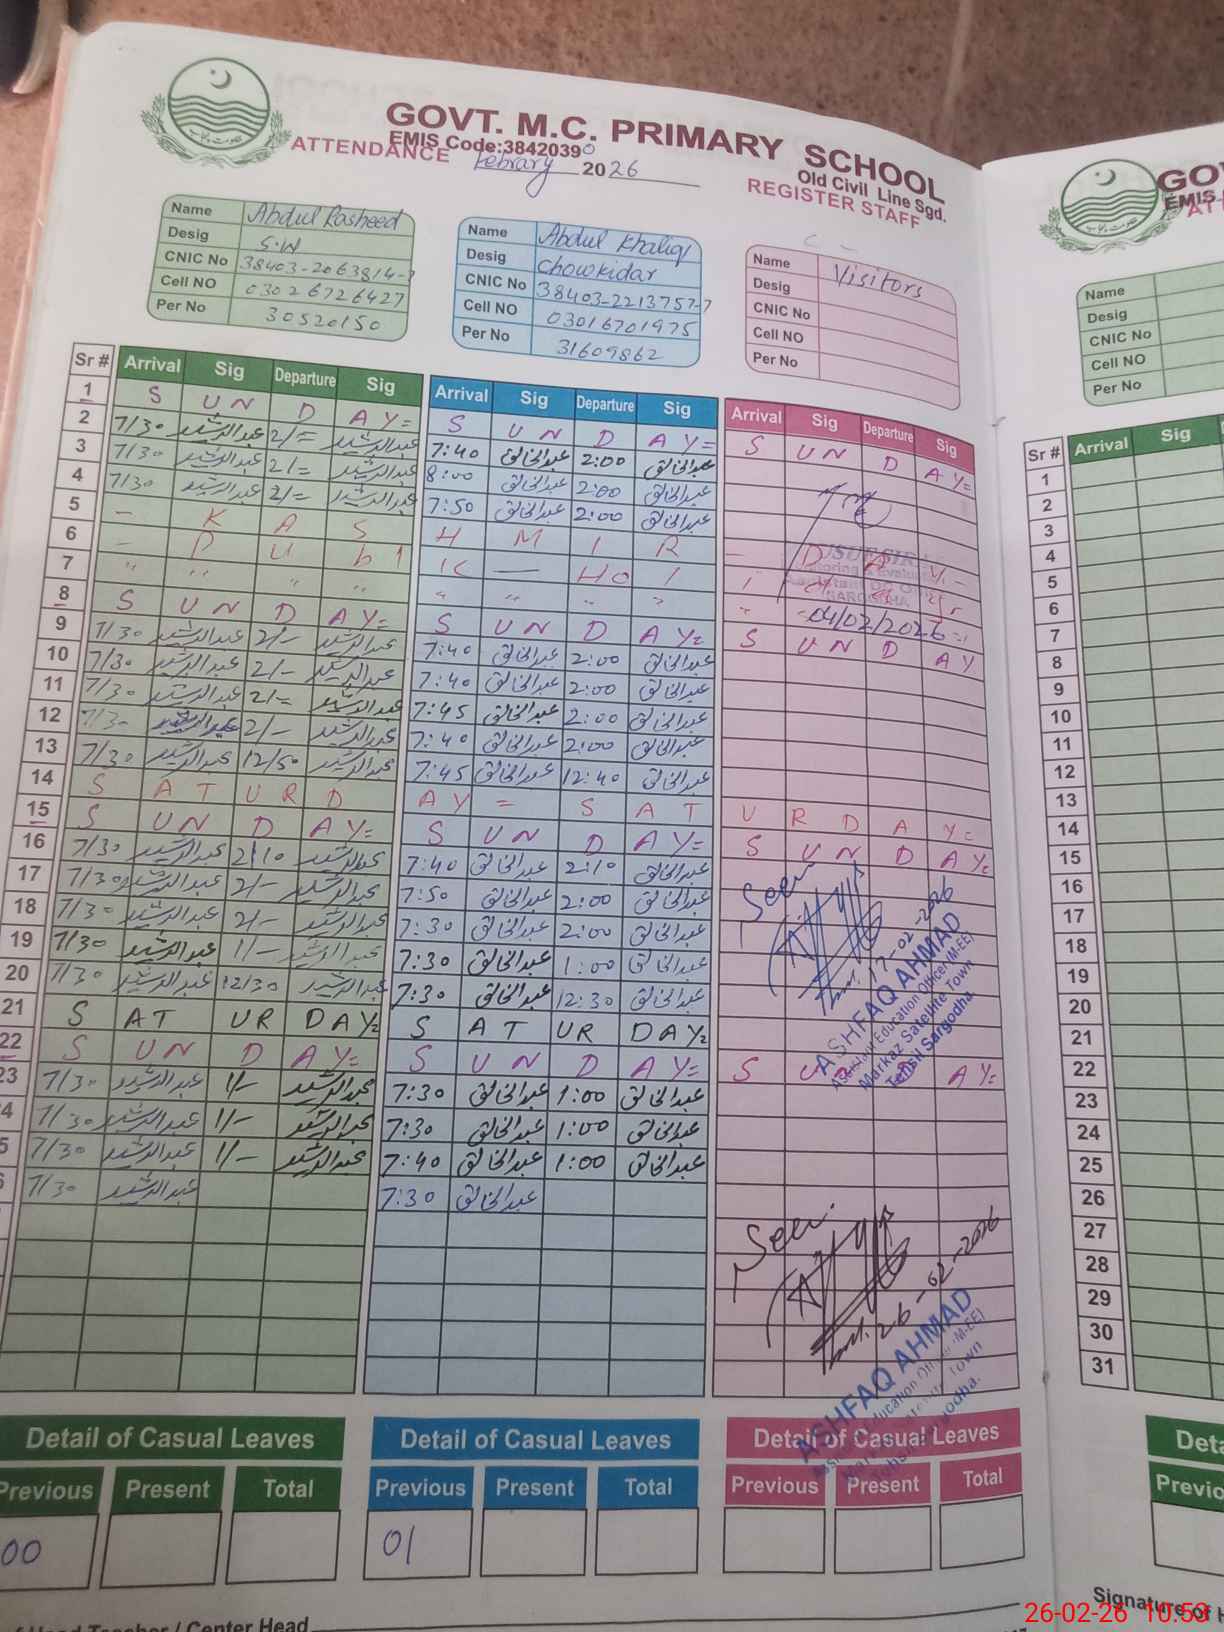 GOVT. M.C. PRIMARY SCHOOL
EMIS Code:38420390 Old Civil Line Sgd.
ATTENDANCE Febrary 2026 REGISTER STAFF
Name Abdul Rasheed
Desig S.W
CNIC No 38403-2063814-3
Cell NO 03026726427
Per No 30520150
Name Abdul Khaliq
Desig Chowkidar
CNIC No 38403-2213757-7
Cell NO 03016701975
Per No 31609862
Name Visitors
Desig
CNIC No
Cell NO
Per No
Sr # Arrival Sig Departure Sig Arrival Sig Departure Sig Arrival Sig Departure Sig
1 S UN D AY= S U N D AY= S U N D AY=
2 7/30 عبدالرشید 2/= عبدالرشید 7:40 عبدالخالق 2:00 عبدالخالق
3 7/30 عبدالرشید 2/= عبدالرشید 8:00 عبدالخالق 2:00 عبدالخالق
4 7/30 عبدالرشید 2/= عبدالرشید 7:50 عبدالخالق 2:00 عبدالخالق
5 - K A S H M I R - D A Y -
6 - P U b l I C — HO l i d a y s
7 " " " " " " " " "
04/02/2026
SARGODHA
8 S U N D AY= S U N D AY= S U N D AY
9 7/30 عبدالرشید 2/- عبدالرشید 7:40 عبدالخالق 2:00 عبدالخالق
10 7/30 عبدالرشید 2/- عبدالرشید 7:40 عبدالخالق 2:00 عبدالخالق
11 7/30 عبدالرشید 2/= عبدالرشید 7:45 عبدالخالق 2:00 عبدالخالق
12 7/30 عبدالرشید 2/- عبدالرشید 7:40 عبدالخالق 2:00 عبدالخالق
13 7/30 عبدالرشید 12/50 عبدالرشید 7:45 عبدالخالق 12:40 عبدالخالق
14 S A T U R D AY = S A T U R D A Y=
15 S UN D AY= S U N D AY= S U N D AY=
16 7/30 عبدالرشید 2/10 عبدالرشید 7:40 عبدالخالق 2:10 عبدالخالق
17 7/30 عبدالرشید 2/- عبدالرشید 7:50 عبدالخالق 2:00 عبدالخالق
18 7/30 عبدالرشید 2/- عبدالرشید 7:30 عبدالخالق 2:00 عبدالخالق
19 7/30 عبدالرشید 1/- عبدالرشید 7:30 عبدالخالق 1:00 عبدالخالق
20 7/30 عبدالرشید 12/30 عبدالرشید 7:30 عبدالخالق 12:30 عبدالخالق
21 S AT UR DAY= S AT UR DAY=
22 S UN D AY= S U N D AY= S U N D AY=
23 7/30 عبدالرشید 1/- عبدالرشید 7:30 عبدالخالق 1:00 عبدالخالق
24 7/30 عبدالرشید 1/- عبدالرشید 7:30 عبدالخالق 1:00 عبدالخالق
25 7/30 عبدالرشید 1/- عبدالرشید 7:40 عبدالخالق 1:00 عبدالخالق
26 7/30 عبدالرشید 7:30 عبدالخالق
Seen
17-02-2026
ASHFAQ AHMAD
Assistant Education Officer (M-EE)
Markaz Satellite Town
Tehsil Sargodha
Seen
26-02-2026
ASHFAQ AHMAD
Assistant Education Officer (M-EE)
Markaz Satellite Town
Tehsil Sargodha.
Detail of Casual Leaves Detail of Casual Leaves Detail of Casual Leaves
Previous Present Total Previous Present Total Previous Present Total
00 01
Head Teacher / Center Head
GOV
EMIS
AT
Name
Desig
CNIC No
Cell NO
Per No
Sr # Arrival Sig
1
2
3
4
5
6
7
8
9
10
11
12
13
14
15
16
17
18
19
20
21
22
23
24
25
26
27
28
29
30
31
Deta
Previo
Signature of H
26-02-26 10:53